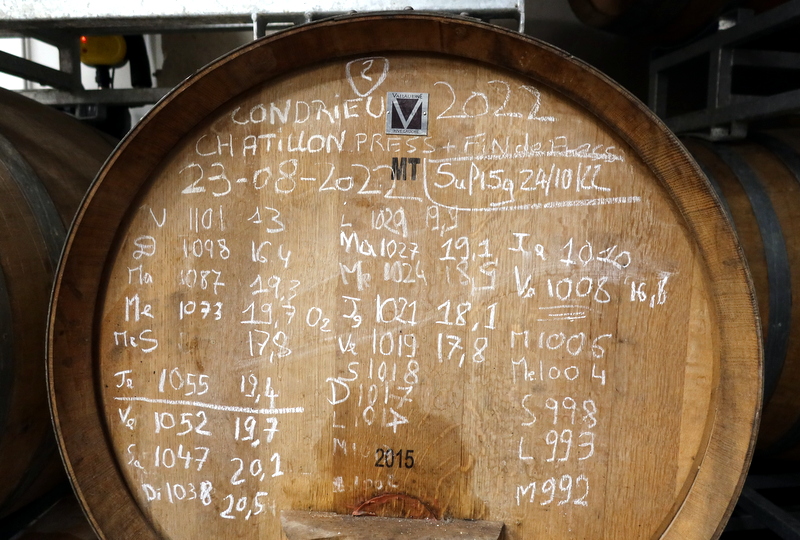 2
CONDRIEU 2022
V
CHATILLON PRESS + Fin de Press
MT
23-08-2022
24/10/22
V 1101 13
D 1098 16,4
Ma 1087 19,3
Me 1073 19,7 O2
MeS 17,8
Je 1055 19,4
Ve 1052 19,7
Sa 1047 20,1
Di 1038 20,5
L 1029 19,9
Ma 1027 19,1
Me 1024 18,5
Je 1021 18,1
Ve 1019 17,8
S 1018
D 1017
L 1017
2015
Je 1010
Ve 1008 16,8
M 1006
Me 1004
S 998
L 993
M 992